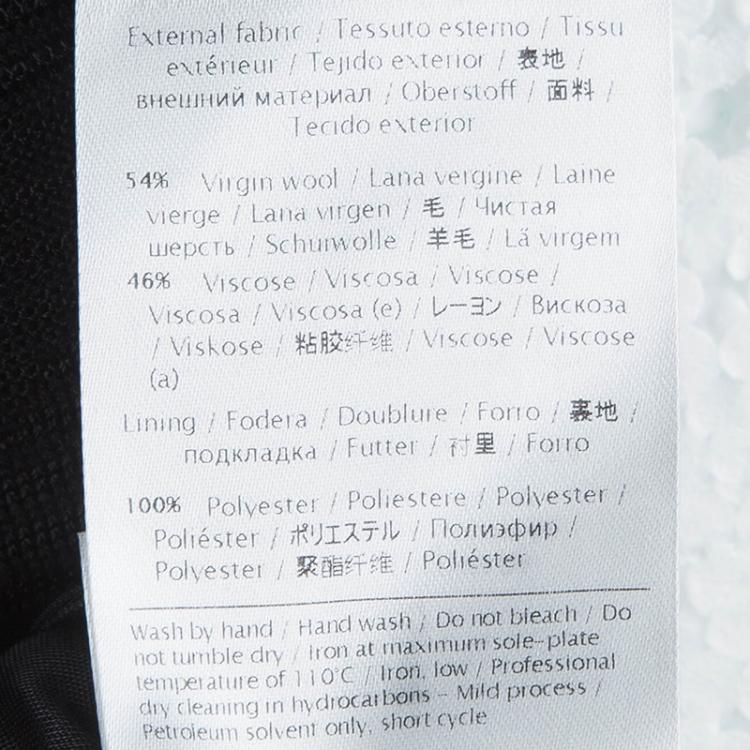 External fabric / Tessuto esterno / Tissu
extérieur / Tejido exterior / 表地 /
внешний материал / Oberstoff / 面料 /
Tecido exterior
54% Virgin wool / Lana vergine / Laine
vierge / Lana virgen / 毛 / Чистая
шерсть / Schurwolle / 羊毛 / Lã virgem
46% Viscose / Viscosa / Viscose /
Viscosa / Viscosa (e) / レーヨン / Вискоза
/ Viskose / 粘胶纤维 / Viscose / Viscose
(a)
Lining / Fodera / Doublure / Forro / 裏地 /
подкладка / Futter / 衬里 / Forro
100% Polyester / Poliestere / Polyester /
Poliéster / ポリエステル / Полиэфир /
Polyester / 聚酯纤维 / Poliéster
Wash by hand / Hand wash / Do not bleach / Do
not tumble dry / Iron at maximum sole-plate
temperature of 110°C / Iron, low / Professional
dry cleaning in hydrocarbons - Mild process /
Petroleum solvent only, short cycle